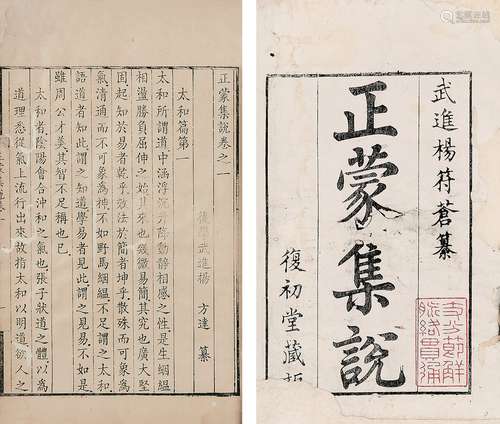 武進楊符蒼纂
正蒙集說
復初堂藏
正蒙集說卷之一
後學武進楊 方達 纂
太和篇第一
太和所謂道中涵浮沉升降動靜相感之性是生絪縕
相盪勝負屈伸之始其來也幾微易簡其究也廣大堅
固起知於易者乾乎效法於簡者坤乎散殊而可象為
氣清通而不可象為神不如野馬絪縕不足謂之太和
語道者知此謂之知道學易者見此謂之見易不如是
雖周公才美其智不足稱也已
太和者陰陽會合沖和之氣也張子狀道之體以為
道理悉從氣上流行出來故指太和以明道欲人之